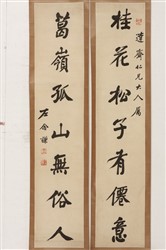 桂花松子有僊意
達齋仁兄大人屬
葛嶺孤山無俗人
左念謙